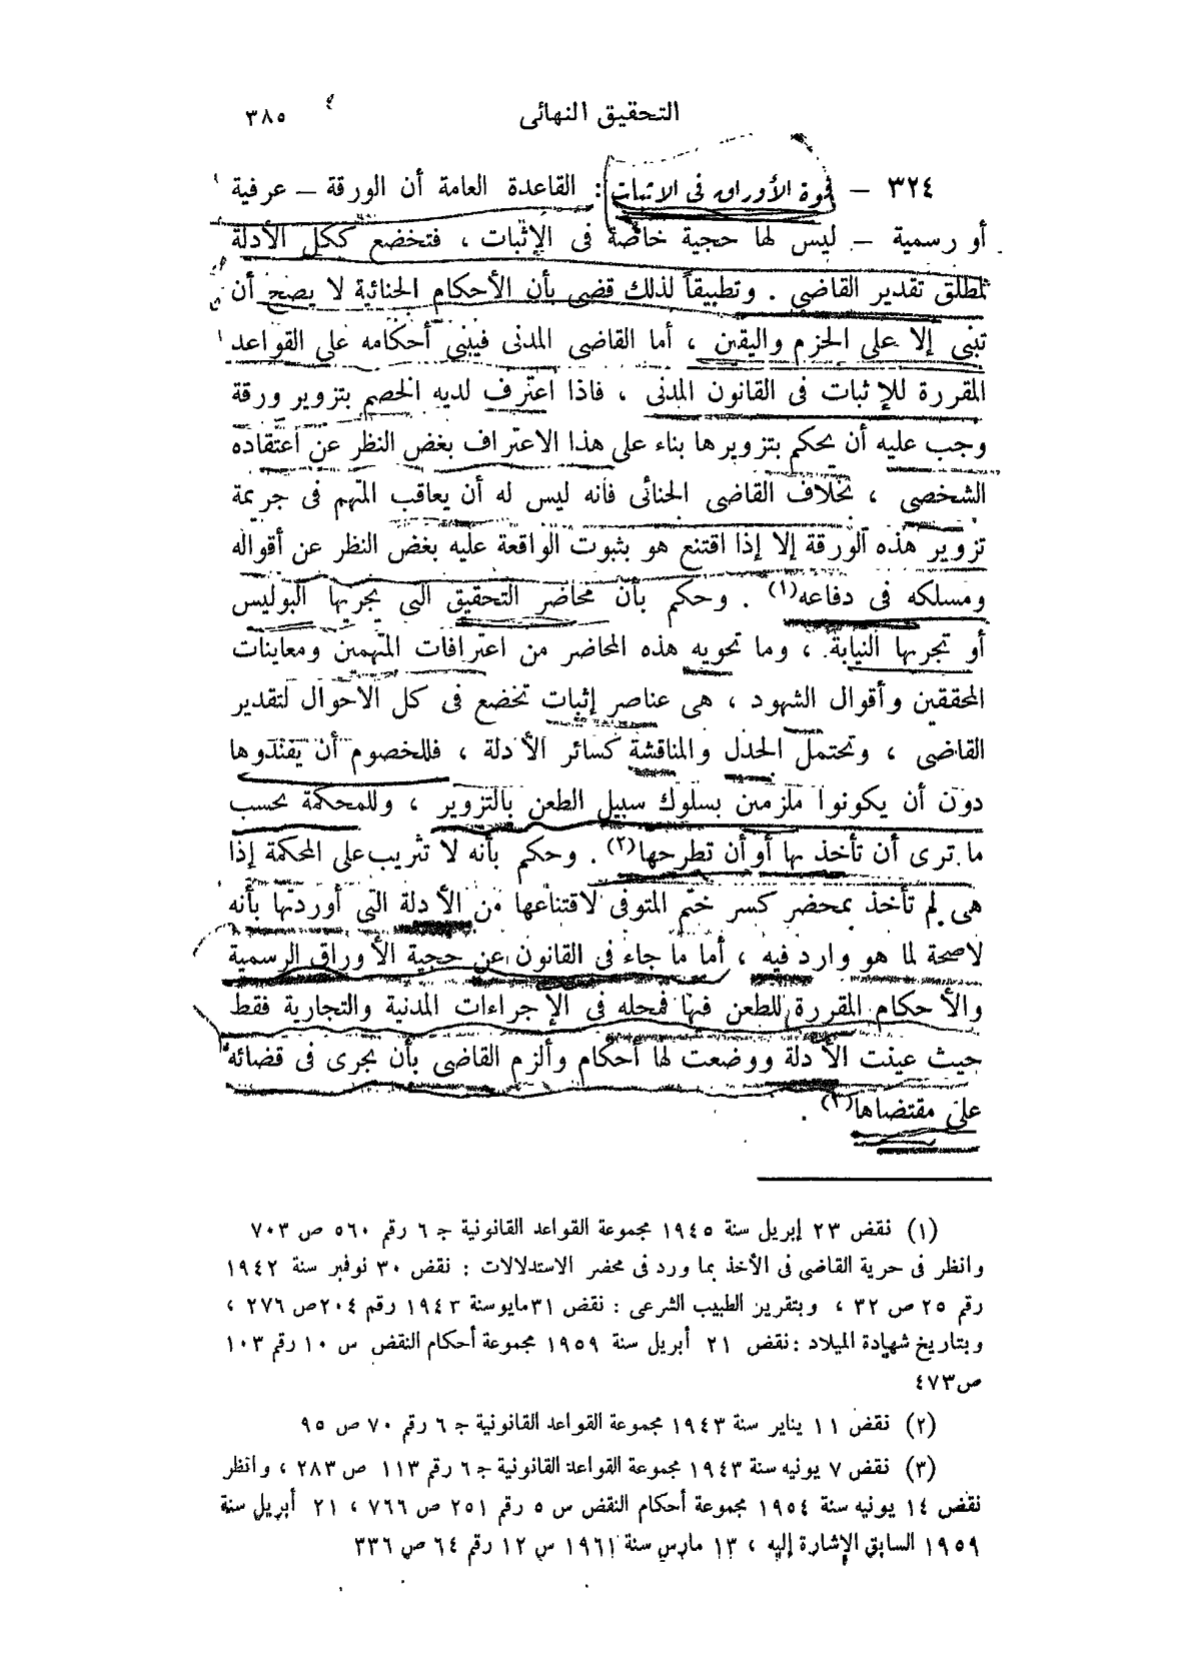 التحقيق النهائى ٣٨٥
٣٢٤ — قوة الأوراق فى الاثبات : القاعدة العامة أن الورقة — عرفية
أو رسمية — ليس لها حجية خاصة فى الإثبات ، فتخضع ككل الأدلة
لمطلق تقدير القاضى . وتطبيقاً لذلك قضى بأن الأحكام الجنائية لا يصح أن
تبنى إلا على الجزم واليقين ، أما القاضى المدنى فيبنى أحكامه على القواعد
المقررة للإثبات فى القانون المدنى ، فاذا اعترف لديه الخصم بتزوير ورقة
وجب عليه أن يحكم بتزويرها بناء على هذا الاعتراف بغض النظر عن اعتقاده
الشخصى ، بخلاف القاضى الجنائى فانه ليس له أن يعاقب المتهم فى جريمة
تزوير هذه الورقة إلا إذا اقتنع هو بثبوت الواقعة عليه بغض النظر عن أقواله
ومسلكه فى دفاعه(١) . وحكم بأن محاضر التحقيق التى يجريها البوليس
أو تجريها النيابة ، وما تحويه هذه المحاضر من اعترافات المتهمين ومعاينات
المحققين وأقوال الشهود ، هى عناصر إثبات تخضع فى كل الأحوال لتقدير
القاضى ، وتحتمل الجدل والمناقشة كسائر الأدلة ، فللخصوم أن يفندوها
دون أن يكونوا ملزمين بسلوك سبيل الطعن بالتزوير ، وللمحكمة بحسب
ما ترى أن تأخذ بها أو أن تطرحها(٢) . وحكم بأنه لا تثريب على المحكمة إذا
هى لم تأخذ بمحضر كسر ختم المتوفى لاقتناعها من الأدلة التى أوردتها بأنه
لا صحة لما هو وارد فيه ، أما ما جاء فى القانون عن حجية الأوراق الرسمية
والأحكام المقررة للطعن فيها فمحله فى الإجراءات المدنية والتجارية فقط
حيث عينت الأدلة ووضعت لها أحكام وألزم القاضى بأن يجرى فى قضائه
على مقتضاها(٣) .
(١) نقض ٢٣ إبريل سنة ١٩٤٥ مجموعة القواعد القانونية ج ٦ رقم ٥٦٠ ص ٧٠٣
وانظر فى حرية القاضى فى الأخذ بما ورد فى محضر الاستدلالات : نقض ٣٠ نوفمبر سنة ١٩٤٢
رقم ٢٥ ص ٣٢ ، وبتقرير الطبيب الشرعى : نقض ٣١ مايو سنة ١٩٤٣ رقم ٢٠٤ ص ٢٧٦ ،
وبتاريخ شهادة الميلاد : نقض ٢١ أبريل سنة ١٩٥٩ مجموعة أحكام النقض س ١٠ رقم ١٠٣
ص ٤٧٣
(٢) نقض ١١ يناير سنة ١٩٤٣ مجموعة القواعد القانونية ج ٦ رقم ٧٠ ص ٩٥
(٣) نقض ٧ يونيه سنة ١٩٤٣ مجموعة القواعد القانونية ج ٦ رقم ١١٣ ص ٢٨٣ ، وانظر
نقض ١٤ يونيه سنة ١٩٥٤ مجموعة أحكام النقض س ٥ رقم ٢٥١ ص ٧٦٦ ، ٢١ أبريل سنة
١٩٥٩ السابق الإشارة إليه ، ١٣ مارس سنة ١٩٦١ س ١٢ رقم ٦٤ ص ٣٣٦